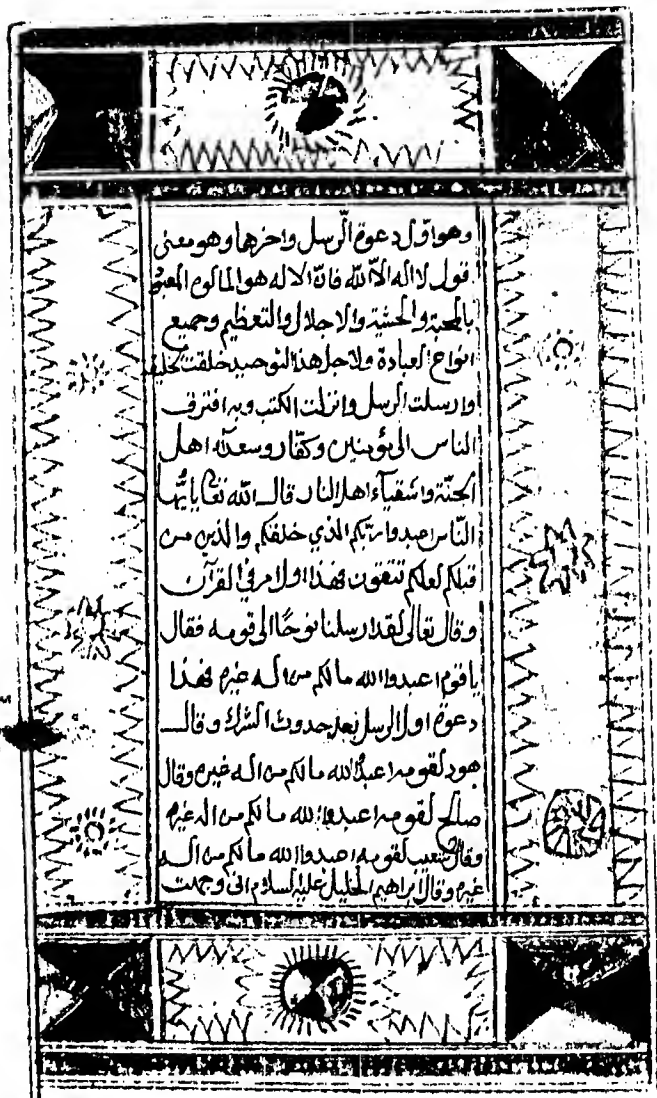 وهو اوّل دعوة الرسل واخرها وهو معنى
قول لا اله الا الله فان الاله هو المالوه المعبود
بالمحبة والخشية والاجلال والتعظيم وجميع
انواع العبادة ولاجل هذا التوحيد خلقت الخليقة
وارسلت الرسل وانزلت الكتب وبه افترق
الناس الى مؤمنين وكفّار وسعدآء اهل
الجنّة واشقيآء اهل النار قال الله تعالى يايّها
النّاس اعبدوا ربّكم الذي خلقكم والذين من
قبلكم لعلكم تتقون فهذا اول امر في القرآن
وقال تعالى لقد ارسلنا نوحًا الى قومه فقال
ياقوم اعبدوا الله مالكم من اله غيره فهذا
دعوة اول الرسل بعد حدوث الشرك وقال
هود لقومه اعبدوا الله مالكم من اله غيره وقال
صالح لقومه اعبدوا الله مالكم من اله غيره
وقال شعيب لقومه اعبدوا الله مالكم من اله
غيره وقال ابراهيم الخليل عليه السلام انى وجهت